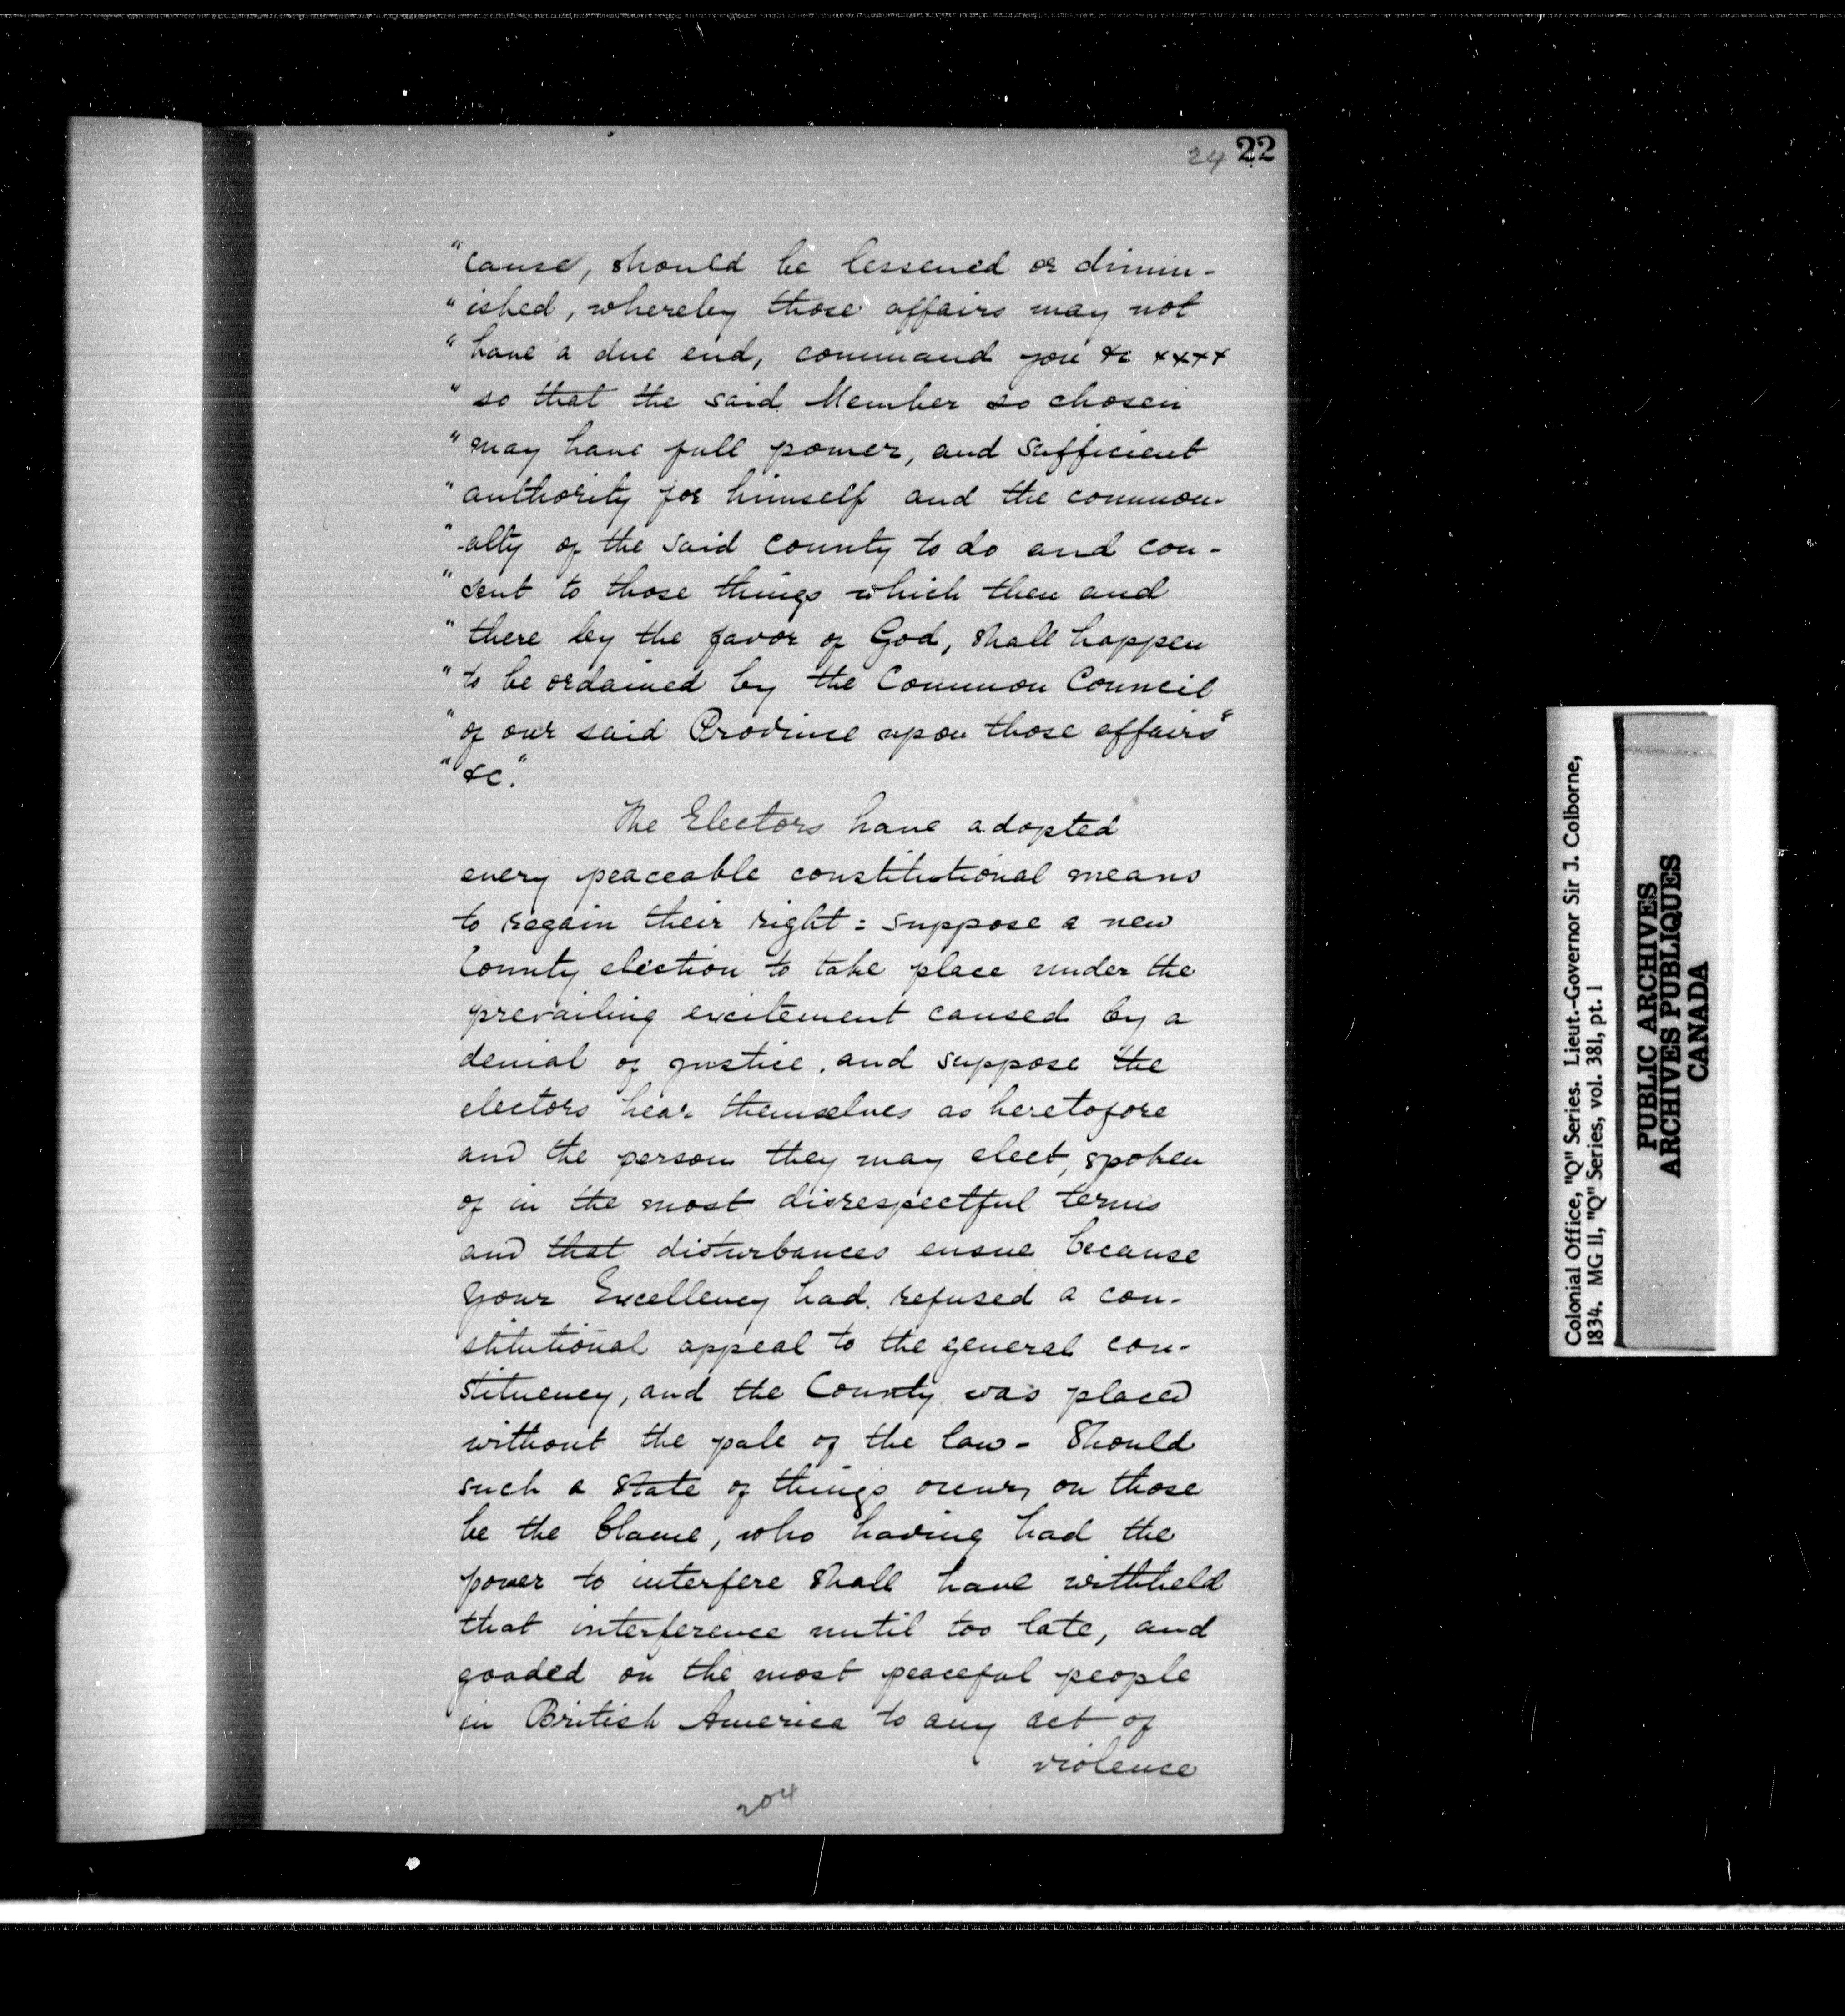 24 22
"cause, should be lessened or dimin-
"ished, whereby those affairs may not
"have a due end, command you &c ××××
"so that the said Member so chosen
"may have full power, and sufficient
"authority for himself and the common-
"-alty of the said county to do and con-
"sent to those things which then and
"there by the favor of God, shall happen
"to be ordained by the Common Council
"of our said Province upon those affairs"
"&c."
The Electors have adopted
every peaceable constitutional means
to regain their right: suppose a new
County election to take place under the
prevailing excitement caused by a
denial of justice. and suppose the
electors hear themselves as heretofore
and the person they may elect, spoken
of in the most disrespectful terms
and that disturbances ensue because
Your Excellency had refused a con-
stitutional appeal to the general con-
stituency, and the County was placed
without the pale of the law - Should
such a state of things occur, on those
be the blame, who having had the
power to interfere shall have withheld
that interference until too late, and
goaded on the most peaceful people
in British America to any act of
violence
204
Colonial Office, "Q" Series. Lieut.-Governor Sir J. Colborne,
1834. MG 11, "Q" Series, vol. 381, pt. 1
PUBLIC ARCHIVES
ARCHIVES PUBLIQUES
CANADA